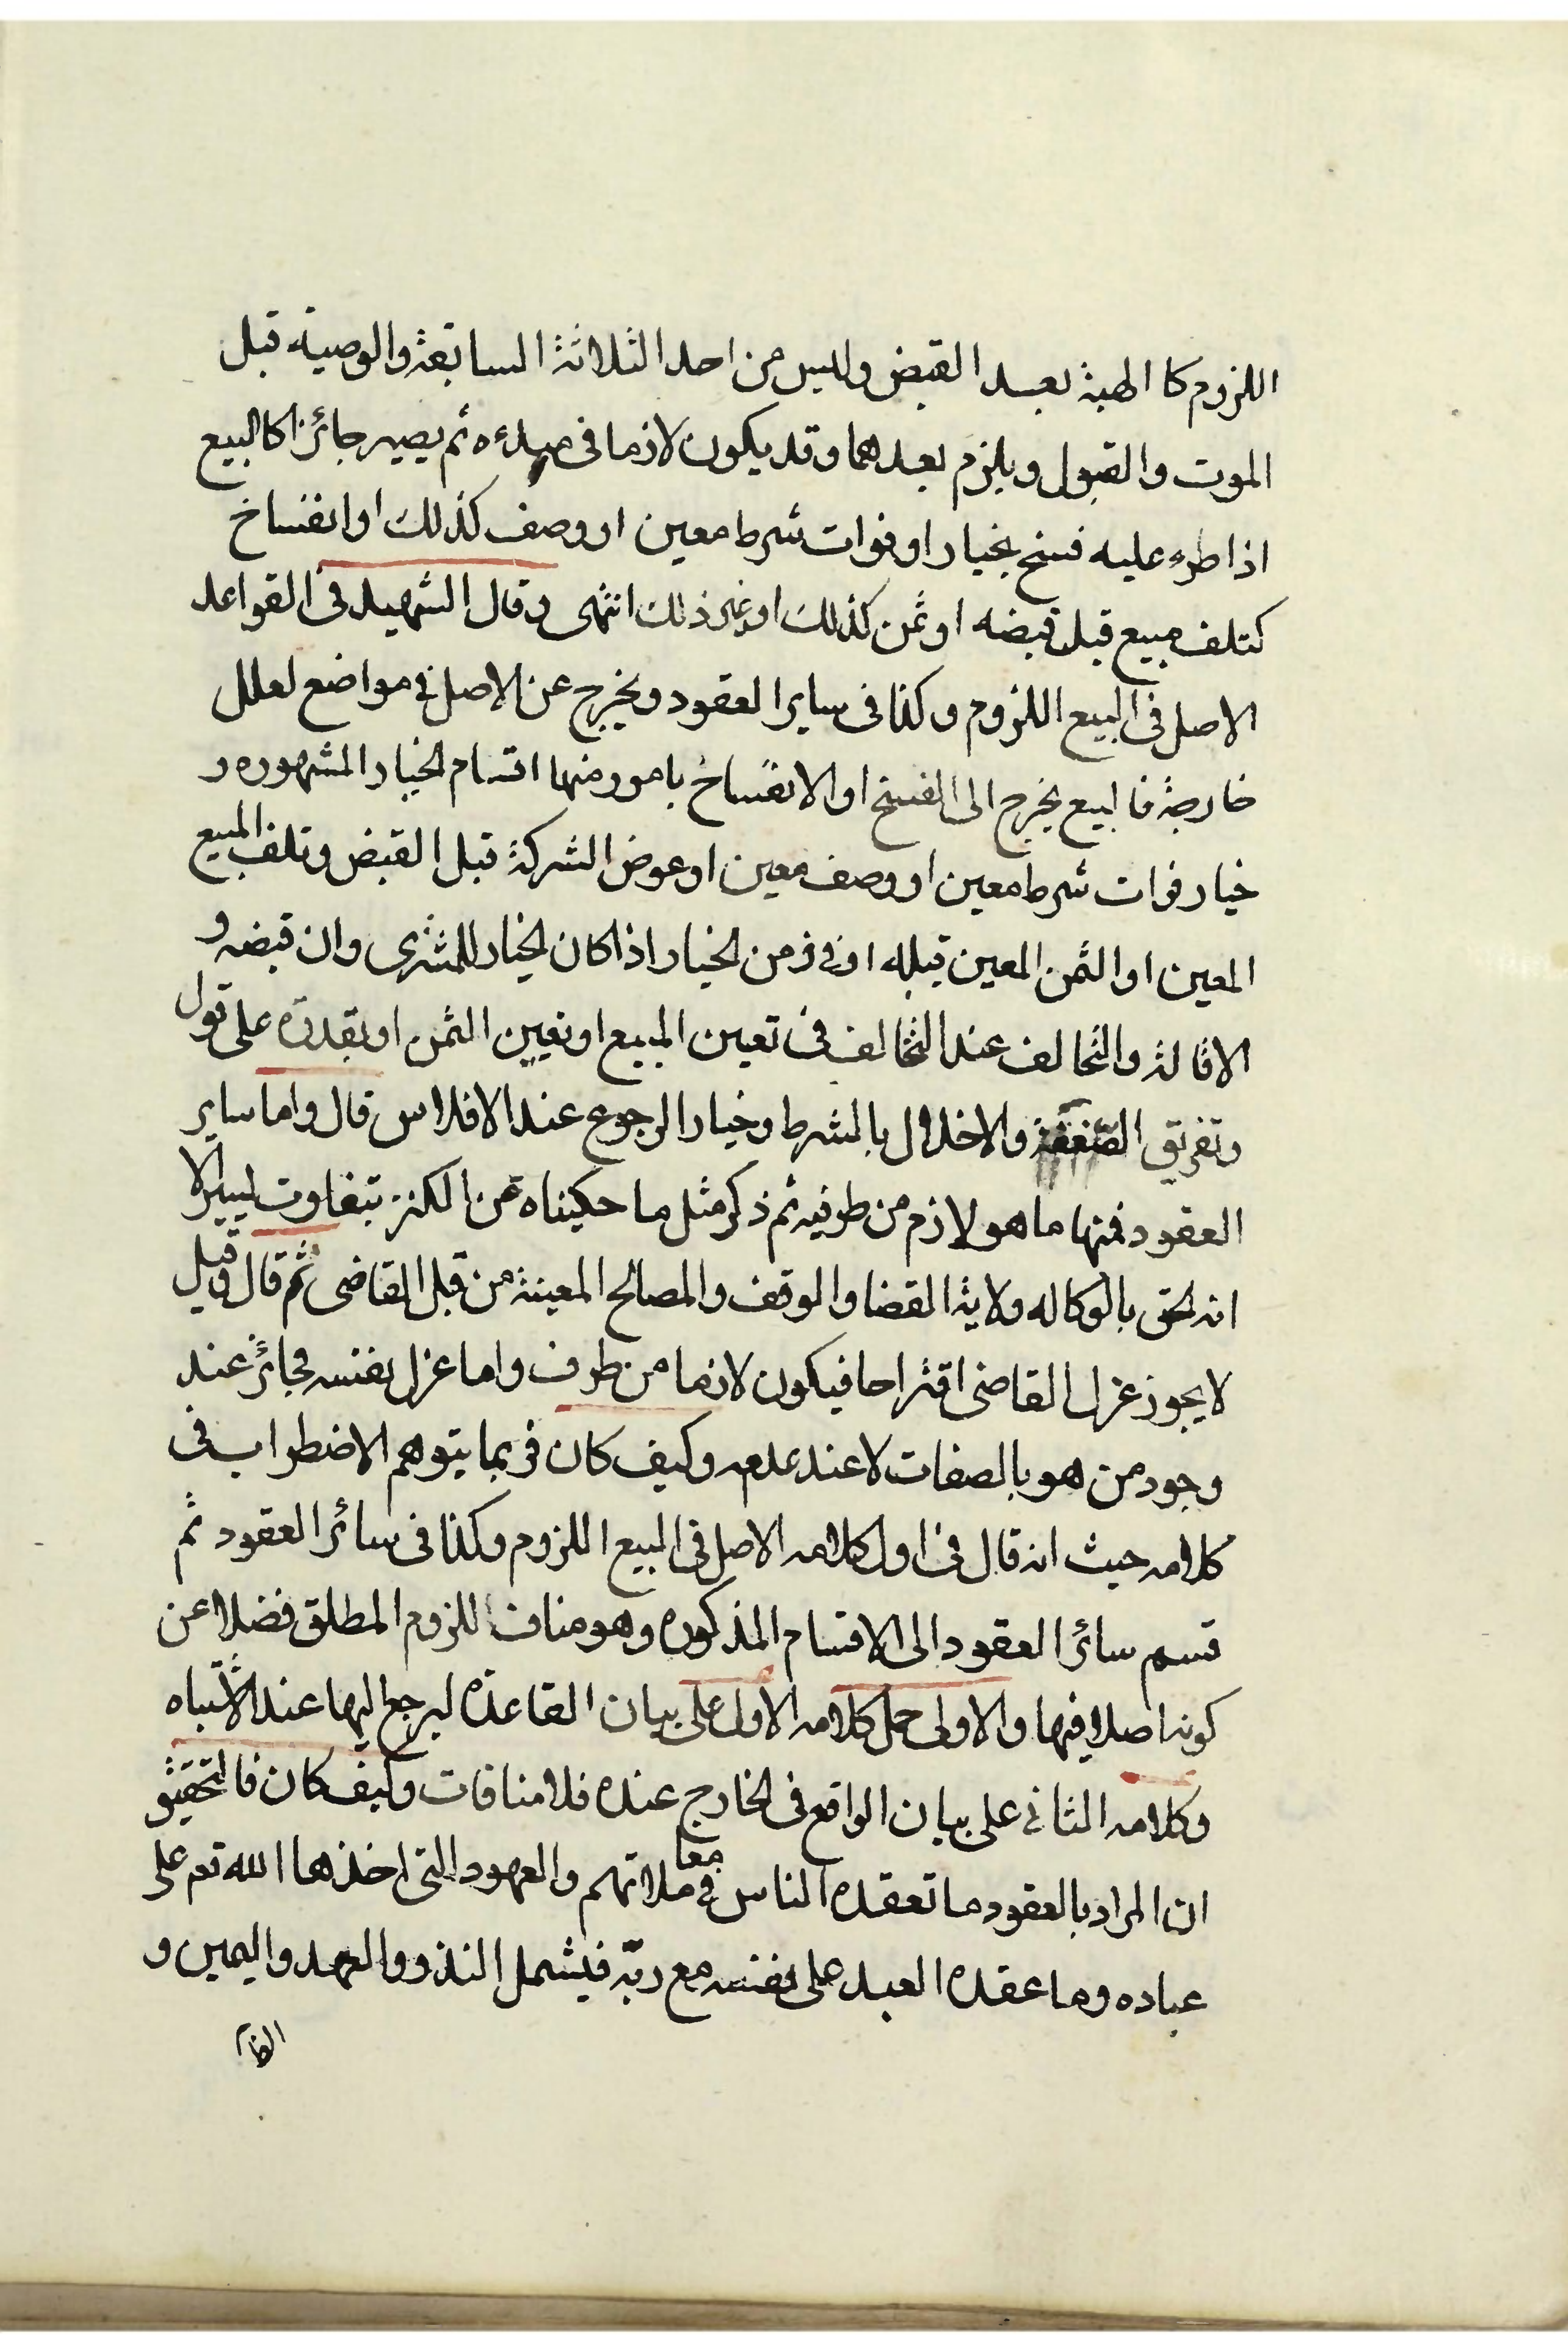 اللزوم كا الهبة بعد القبض وليس من احد الثلاثة السابقة والوصية قبل
الموت والقبول ويلزم بعدهما وقد يكون لازما فى مبدءه ثم يصير جائزا كالبيع
اذا طرء عليه فسخ بخيار او فوات شرط معين او وصف كذلك او انفساخ
كتلف مبيع قبل قبضه او ثمن كذلك او غير ذلك انتهى وقال الشهيد فى القواعد
الاصل فى البيع اللزوم وكذا فى ساير العقود ويخرج عن الاصل فى مواضع لعلل
خارجة فالبيع يخرج الى الفسخ او الانفساخ بامور منها اقسام الخيار المشهوره و
خيار فوات شرط معين او وصف معين او عوض الشركة قبل القبض وتلف المبيع
المعين او الثمن المعين قبله او فى زمن الخيار اذا كان الخيار للمشترى وان قبضه و
الاقالة والتحالف عند التخالف فى تعين المبيع او تعيين الثمن او تقدره على قول
وتفريق الصفقة والاخلال بالشرط وخيار الرجوع عند الافلاس قال واما ساير
العقود فمنها ما هو لازم من طرفيه ثم ذكر مثل ما حكيناه عن الكنز بتفاوت يسير الا
انه لحق بالوكاله ولاية القضا والوقف والمصالح المعينة من قبل القاضى ثم قال وقيل
لا يجوز عزل القاضى اقتراحا فيكون لازما من طرف واما عزل نفسه فجائز عند
وجود من هو بالصفات لا عند عدمه وكيف كان فربما يتوهم الاضطراب فى
كلامه حيث انه قال فى اول كلامه الاصل فى البيع اللزوم وكذا فى سائر العقود ثم
قسم سائر العقود الى الاقسام المذكوره وهو مناف اللزوم المطلق فضلا عن
كونه اصلا فيها والاولى حمل كلامه الاول على بيان القاعدة ليرجع اليها عند الاشتباه
وكلامه الثانى على بيان الواقع فى الخارج عنده فلا منافات وكيف كان فالتحقيق
ان المراد بالعقود ما تعقده الناس فى معاملاتهم والعهود التى اخذها الله تعم على
عباده وما عقده العبد على نفسه مع ربّه فيشمل النذر والعهد واليمين و